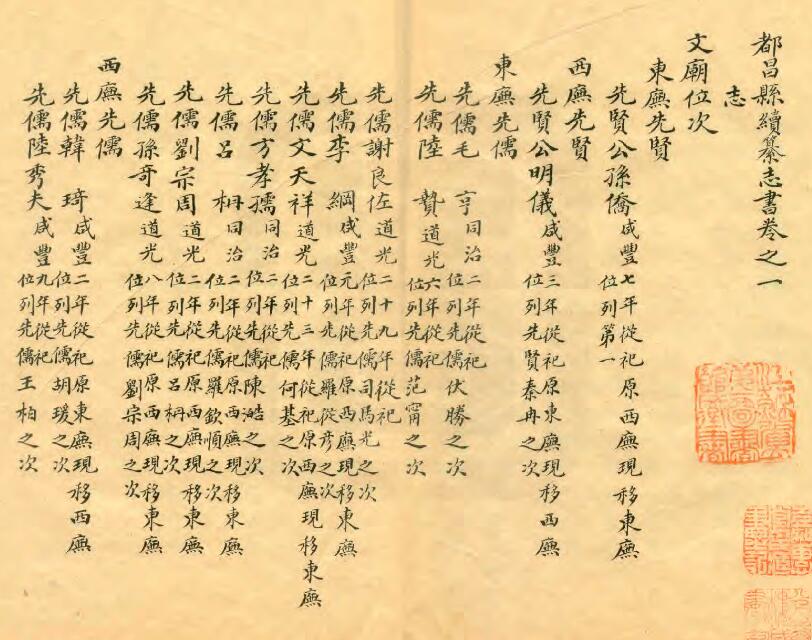 都昌縣續纂志書卷之一
志
文廟位次
東廡先賢
先賢公孫僑咸豐七年從祀原西廡現移東廡位列第一
西廡先賢
先賢公明儀咸豐三年從祀原東廡現移西廡位列先賢秦冉之次
東廡先儒
先儒毛亨同治二年從祀位列先儒伏勝之次
先儒陸贄道光六年從祀位列先儒范甯之次
先儒謝良佐道光二十九年從祀位列先儒司馬光之次
先儒李綱咸豐元年從祀原西廡現移東廡位列先儒羅從彥之次
先儒文天祥道光二十三年從祀原西廡現移東廡位列先儒何基之次
先儒方孝孺同治二年從祀位列先儒陳澔之次
先儒呂柟同治二年從祀原西廡現移東廡位列先儒羅欽順之次
先儒劉宗周道光二年從祀原西廡現移東廡位列先儒呂柟之次
先儒孫奇逢道光八年從祀原西廡現移東廡位列先儒劉宗周之次
西廡先儒
先儒韓琦咸豐二年從祀原東廡現移西廡位列先儒胡瑗之次
先儒陸秀夫咸豐九年從祀位列先儒王柏之次